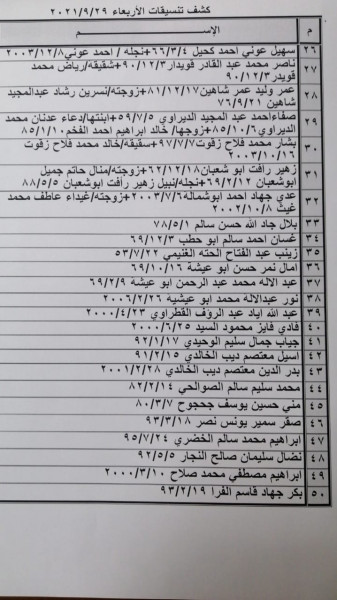 كشف تنسيقات الأربعاء ٢٠٢١/٩/٢٩
م الإســــم
٢٦ سهيل عوني احمد كحيل ٦٦/٣/٤+نجله / احمد عوني ٢٠٠٣/١٢/٨
٢٧ ناصر محمد عبد القادر قويدار ٩٠/١٢/٣+شقيقه/رياض محمد
قويدر ٩٠/١٢/٣
٢٨ عمر وليد عمر شاهين ٨١/١٢/١٧+زوجته/نسرين رشاد عبدالمجيد
شاهين ٧٦/٩/٢١
٢٩ صفاءاحمد عبد المجيد الديراوي ٥٩/٧/٥+ابنتها/دعاء عدنان محمد
الديراوي ٨٥/١٠/٦+زوجها/ خالد ابراهيم احمد الفخم ٨٥/١/١٠
٣٠ بشار محمد فلاح زقوت ٩٧/٧/٧+سقيقه/خالد محمد فلاح زقوت
٢٠٠٣/١٠/١٦
٣١ زهير رافت ابو شعبان ٦٢/١٢/١٨+زوجته/منال حاتم جميل
ابوشعبان ٦٩/٢/١٢+نجله/نبيل زهير رافت ابوشعبان ٨٨/٥/٥
٣٢ عدي جهاد احمد ابوشماله ٢٠٠٣/٧/٦+زوجته/غيداء عاطف محمد
غيث ٢٠٠٢/١٠/٨
٣٣ بلال جاد الله حسن سالم ٧٨/٥/١
٣٤ غسان احمد سالم ابو حطب ٦٩/١٢/٣
٣٥ زينب عبد الفتاح الحته الغنيمي ٥٣/٧/٢٢
٣٦ امال نمر حسن ابو عيشة ٦٩/١٠/١٦
٣٧ عبد الاله محمد عبد الرحمن ابو عيشة ٦٩/٢/٩
٣٨ نور عبدالاله محمد ابو عيشيه ٢٠٠٦/٢/٢٦
٣٩ عبد الله اياد عبد الرؤف القطراوي ٢٠٠٠/٤/٢٣
٤٠ فادي فايز محمود السيد ٢٠٠٠/٦/٢٥
٤١ جياب جمال سليم الوحيدي ٩٢/١/١٧
٤٢ اسيل معتصم ديب الخالدي ٩١/٢/١٥
٤٣ بدر الدين معتصم ديب الخالدي ٢٠٠١/٢/٢٨
٤٤ محمد سليم سالم الصوالحي ٨٢/٢/١٤
٤٥ مني حسين يوسف جحجوح ٨٠/٣/٧
٤٦ صقر سمير يونس نصر ٩٣/٣/١٨
٤٧ ابراهيم محمد سالم الخضري ٩٥/٧/٢٤
٤٨ نضال سليمان صالح النجار ٩٢/٥/٥
٤٩ ابراهيم مصطفي محمد صلاح ٢٠٠٠/٣/١٠
٥٠ بكر جهاد قاسم الفرا ٩٣/٢/١٩